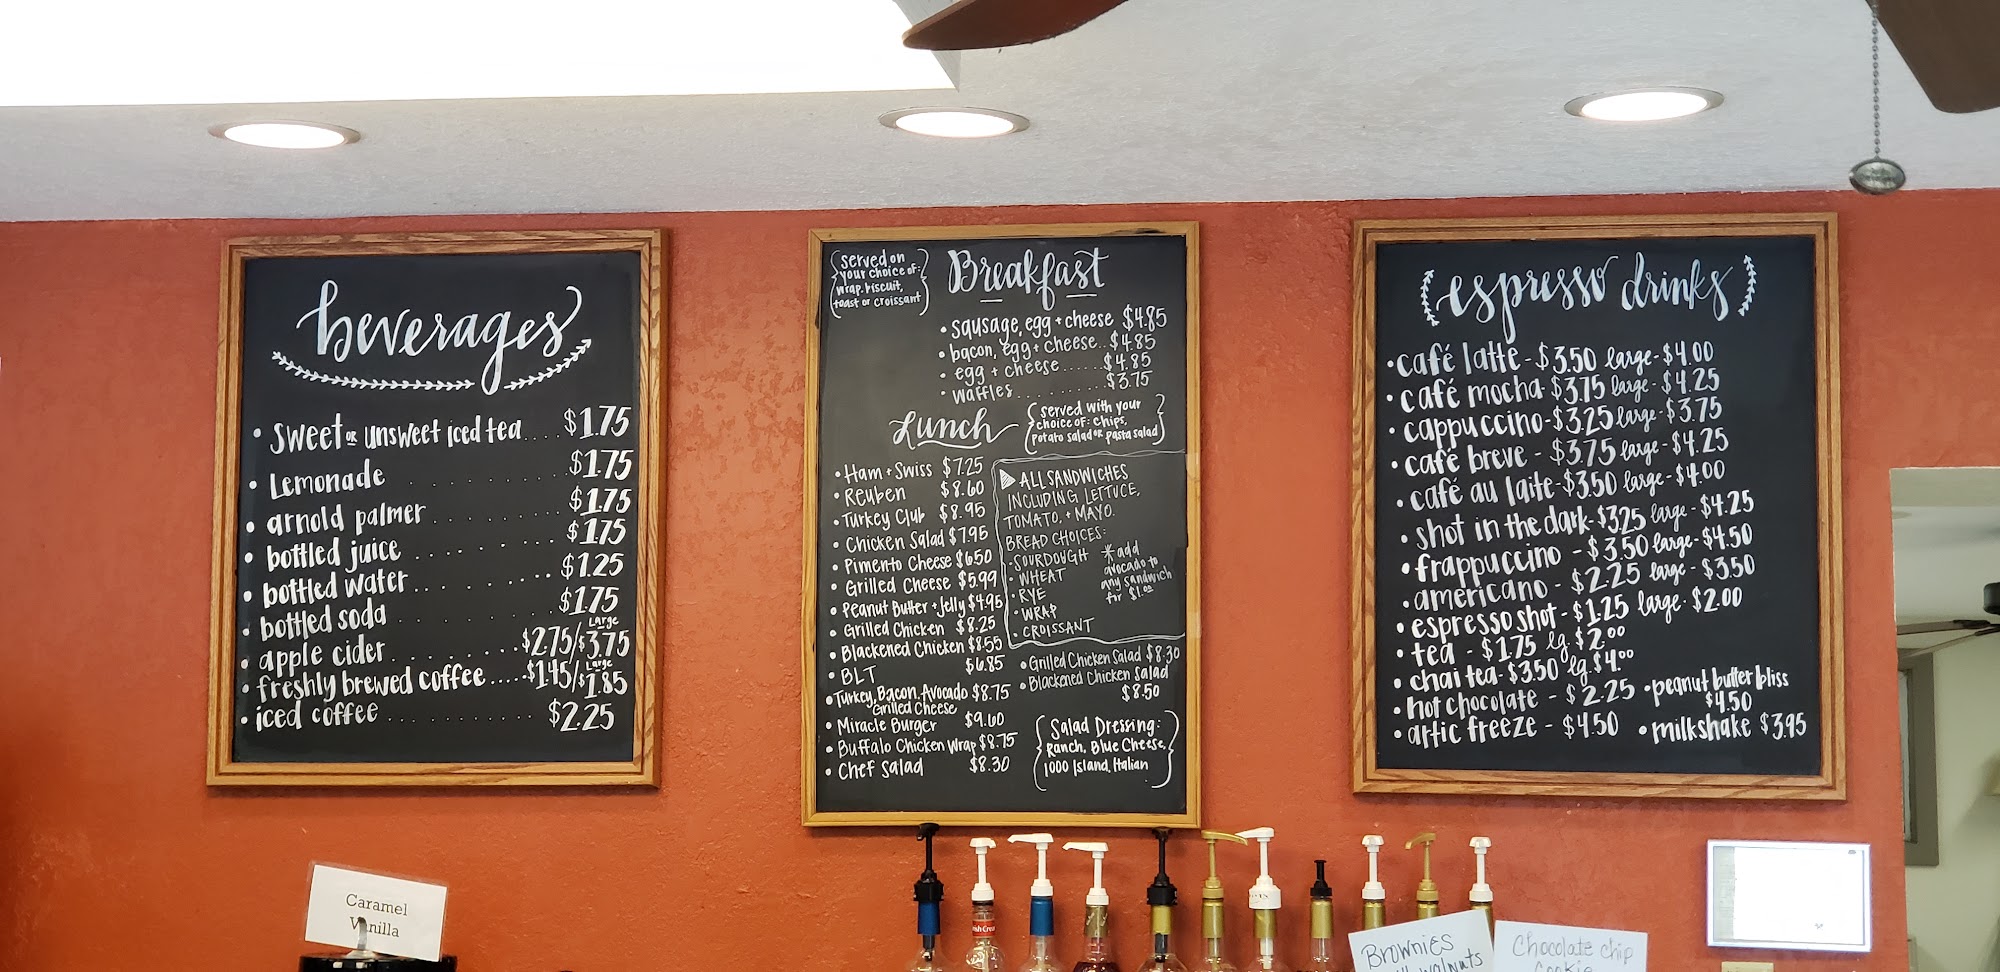 beverages
• sweet or unsweet iced tea.... $1.75
• Lemonade ......... $1.75
• arnold palmer ......... $1.75
• bottled juice ......... $1.75
• bottled water ......... $1.25
• bottled soda ......... $1.75
Large
• apple cider ......... $2.75/$3.75
Large
• freshly brewed coffee.....$1.45/$1.85
• iced coffee ......... $2.25
{served on
your choice of:
wrap, biscuit,
toast or croissant}
Breakfast
• sausage, egg + cheese $4.85
• bacon, egg + cheese..$4.85
• egg + cheese......$4.85
• waffles.........$3.75
Lunch
{served with your
choice of: chips,
potato salad or pasta salad}
• Ham + Swiss $7.25
• Reuben $8.60
• Turkey Club $8.95
• Chicken Salad $7.95
• Pimento Cheese $6.50
• Grilled Cheese $5.99
• Peanut Butter + Jelly $4.95
• Grilled Chicken $8.25
• Blackened Chicken $8.55
• BLT $6.85
• Turkey, Bacon, Avocado $8.75
Grilled Cheese
• Miracle Burger $9.60
• Buffalo Chicken Wrap $8.75
• Chef Salad $8.30
ALL SANDWICHES
INCLUDING LETTUCE,
TOMATO, + MAYO.
BREAD CHOICES:
• SOURDOUGH
• WHEAT
• RYE
• WRAP
• CROISSANT
* add
avocado to
any sandwich
for $1.00
• Grilled Chicken Salad $8.30
• Blackened Chicken Salad
$8.50
{Salad Dressing:
Ranch, Blue Cheese,
1000 Island, Italian}
espresso drinks
• café latte - $3.50 large - $4.00
• café mocha - $3.75 large - $4.25
• cappuccino - $3.25 large - $3.75
• café breve - $3.75 large - $4.25
• café au laite - $3.50 large - $4.00
• shot in the dark - $3.25 large - $4.25
• frappuccino - $3.50 large - $4.50
• americano - $2.25 large - $3.50
• espresso shot - $1.25 large - $2.00
• tea - $1.75 lg. $2.00
• chai tea - $3.50 lg. $4.00
• hot chocolate - $2.25
• artic freeze - $4.50
• peanut butter bliss
$4.50
• milkshake $3.95
Caramel
Vanilla
Brownies
walnuts
Chocolate chip
Cookie